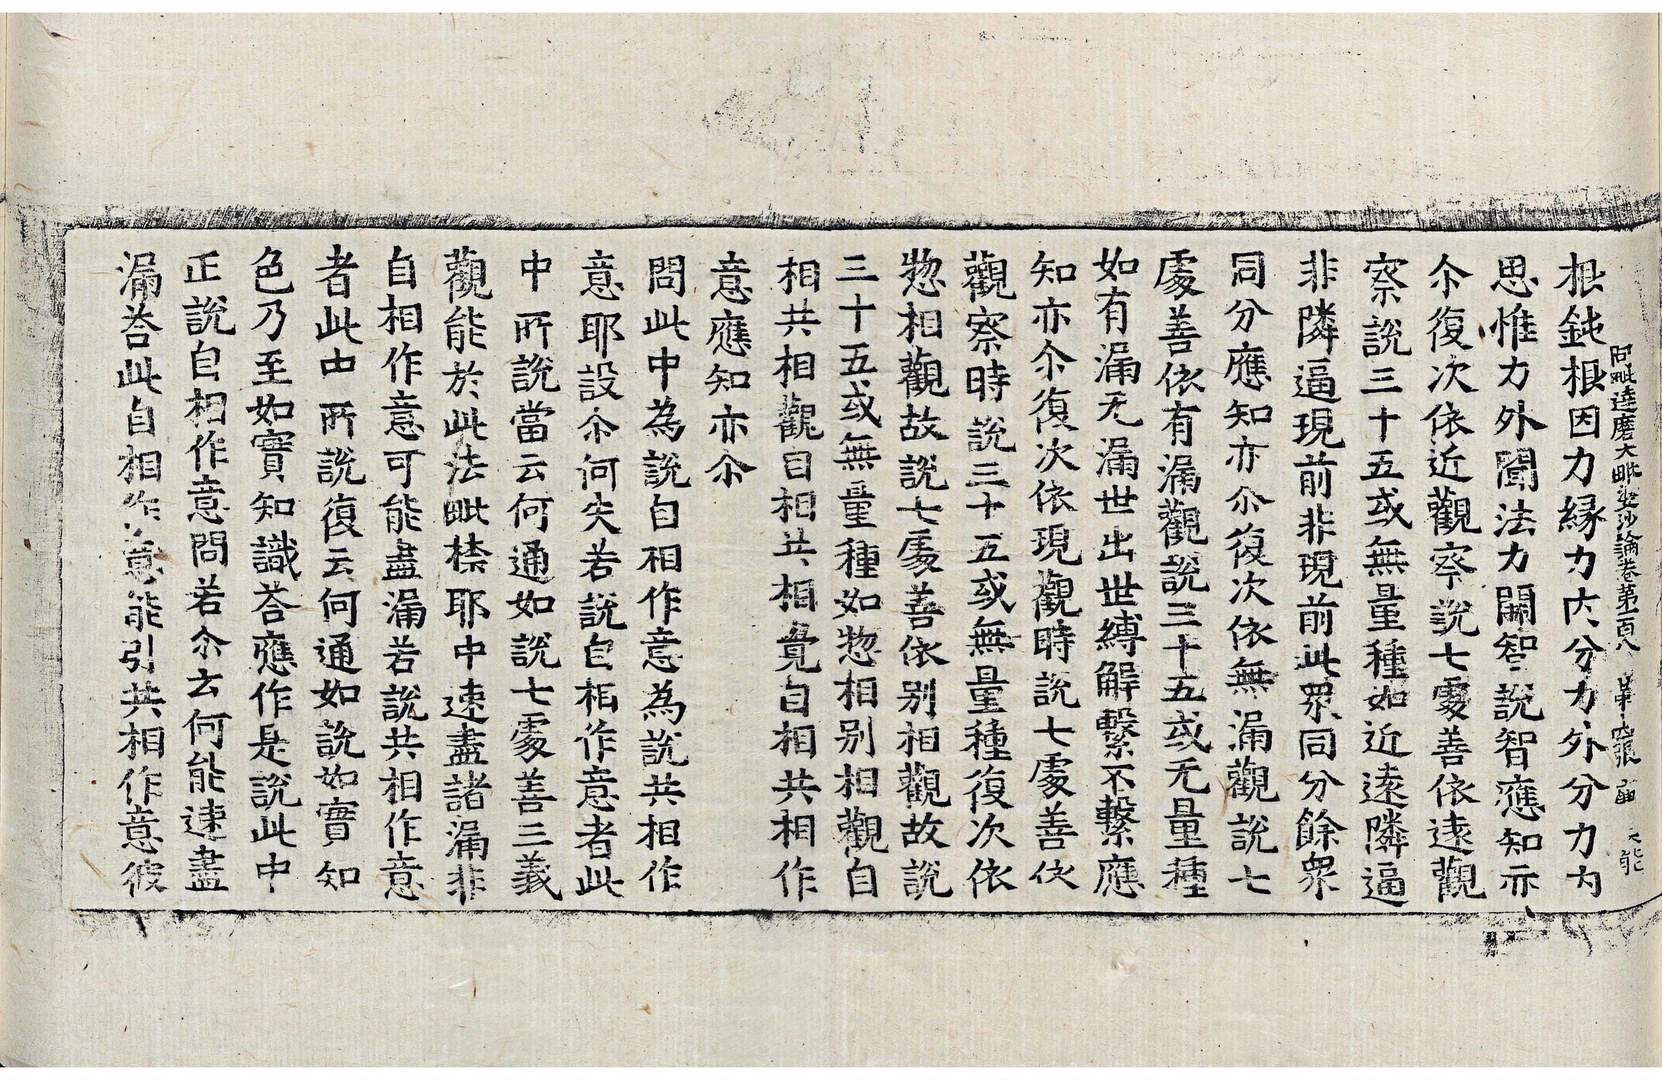 根鈍根因力緣力內分力外分力內
阿毗達磨大毗婆沙論卷第一百八 第 張
思惟力外聞法力開智說智應知亦
尒復次依近觀察說七處善依遠觀
察說三十五或無量種如近遠隣逼
非隣逼現前非現前此眾同分餘眾
同分應知亦尒復次依無漏觀說七
處善依有漏觀說三十五或无量種
如有漏无漏世出世縛解繫不繫應
知亦尒復次依現觀時說七處善依
觀察時說三十五或無量種復次依
惣相觀故說七處善依別相觀故說
三十五或無量種如惣相別相觀自
相共相觀自相共相覺自相共相作
意應知亦尒
問此中為說自相作意為說共相作
意耶設尒何失若說自相作意者此
中所說當云何通如說七處善三義
觀能於此法毗柰耶中速盡諸漏非
自相作意可能盡漏若說共相作意
者此中所說復云何通如說如實知
色乃至如實知識荅應作是說此中
正說自相作意問若尒云何能速盡
漏荅此自相作意能引共相作意彼